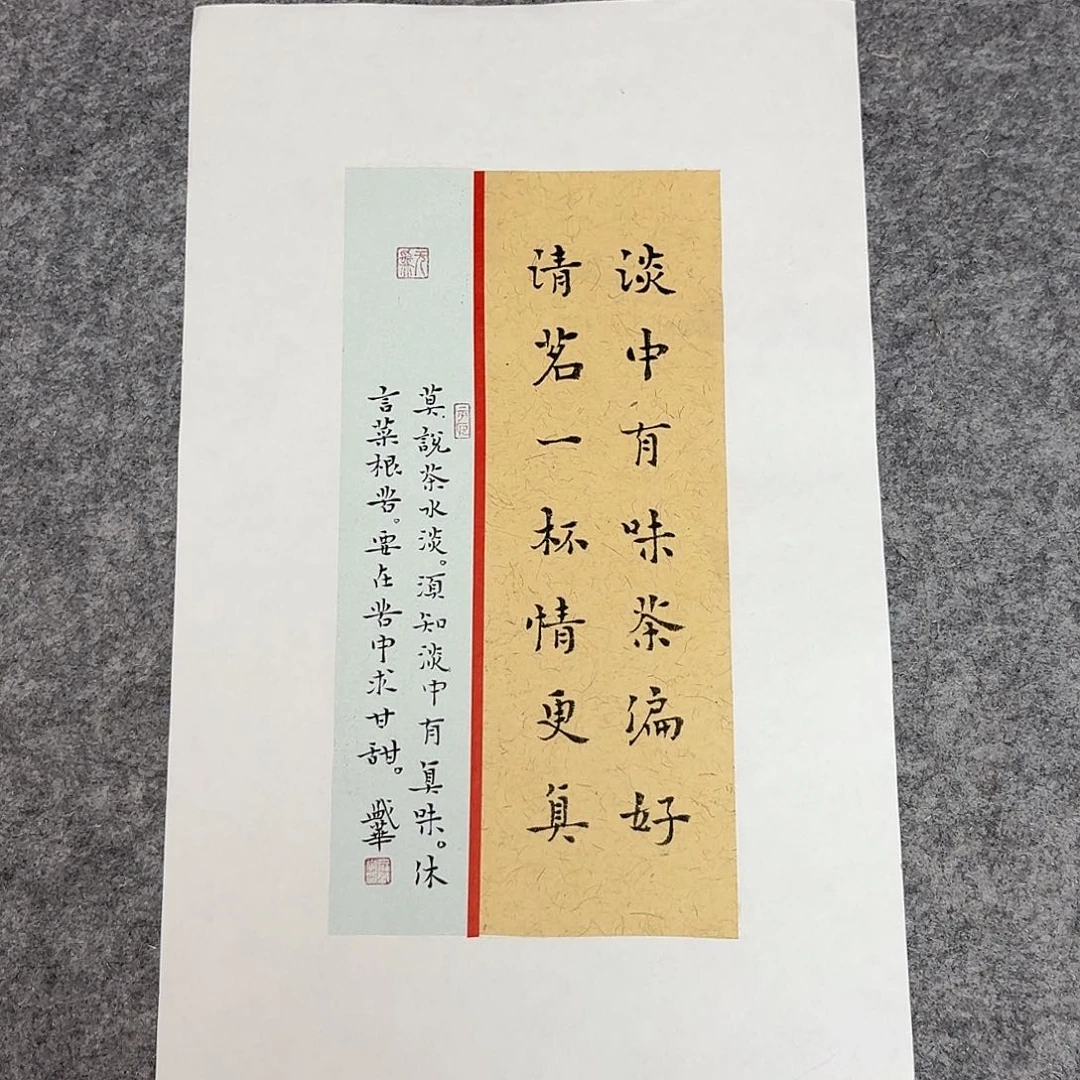 淡中有味茶偏好
请茗一杯情更真
莫說茶水淡。須知淡中有真味。休
言菜根苦。要在苦中求甘甜。
盛華